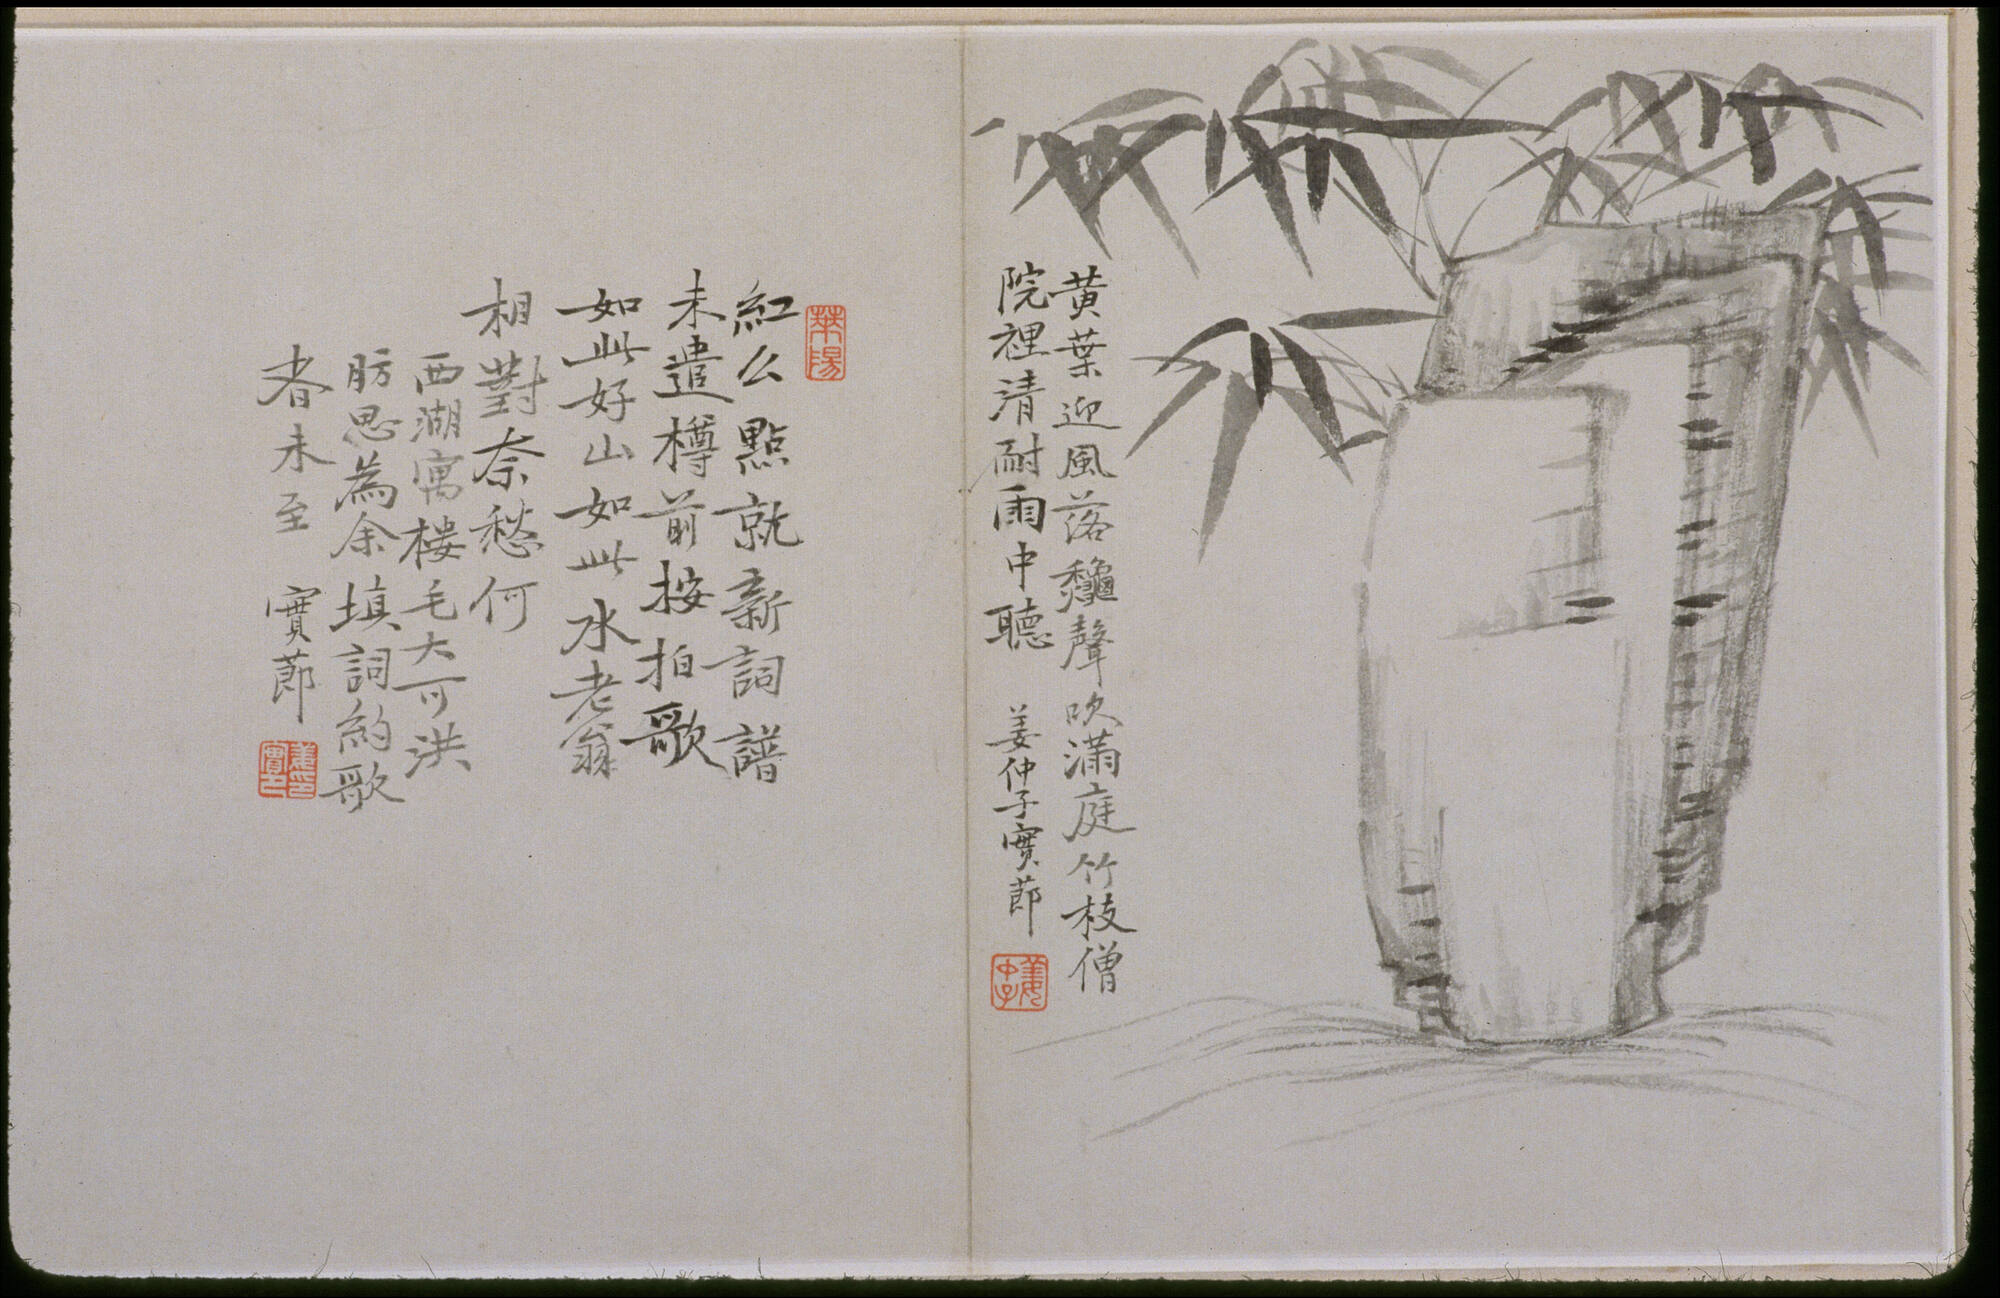 黄葉迎風落龝聲吹滿庭竹枝僧
院裡清耐雨中聽
姜仲子實莭
紅么點就新詞譜
未遣樽前按拍歌
如此好山如此水老翁
相對奈愁何
西湖寓楼毛大可洪
肪思為余填詞約歌
者未至
實莭